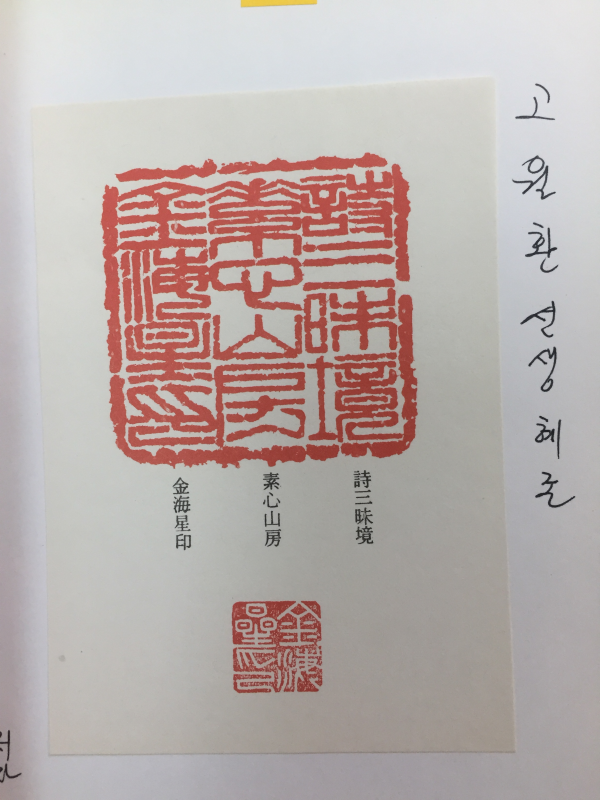 고 월 환 선생 혜존
詩三昧境
素心山房
金海星印
詩三昧境
素心山房
金海星印
金海
星印